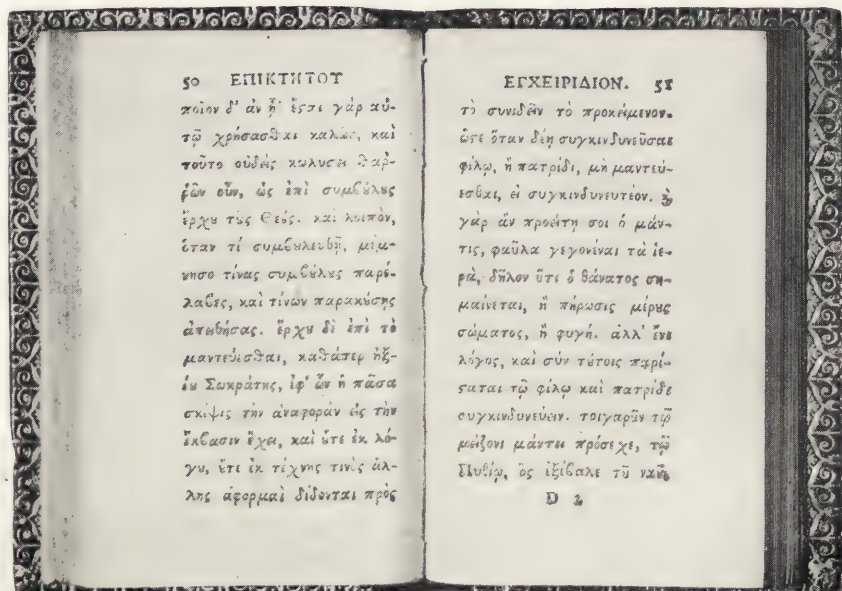 50 ΕΠΙΚΤΗΤΟΥ
ποῖον δ' ἂν ᾖ· ἔσται γὰρ αὐ-
τῷ χρήσασθαι καλῶς, καὶ
τοῦτο οὐδεὶς κωλύσει θαῤ-
ῥῶν οὖν, ὡς ἐπὶ συμβούλους
ἔρχου τοὺς Θεούς. καὶ λοιπὸν,
ὅταν τί συμβουλευθῇ, μέμ-
νησο τίνας συμβούλους παρέ-
λαβες, καὶ τίνων παρακούσεις
ἀπειθήσας. ἔρχου δὲ ἐπὶ τὸ
μαντεύεσθαι, καθάπερ ἠξ-
ίου Σωκράτης, ἐφ' ὧν ἡ πᾶσα
σκέψις τὴν ἀναφορὰν εἰς τὴν
ἔκβασιν ἔχει, καὶ οὔτε ἐκ λό-
γου, οὔτε ἐκ τέχνης τινὸς ἄλ-
λης ἀφορμαὶ δίδονται πρὸς
ΕΓΧΕΙΡΙΔΙΟΝ. 51
τὸ συνιδεῖν τὸ προκείμενον.
ὥστε ὅταν δέῃ συγκινδυνεῦσαι
φίλῳ, ἢ πατρίδι, μὴ μαντεύ-
εσθαι, εἰ συγκινδυνευτέον. καὶ
γὰρ ἂν προείπῃ σοι ὁ μάν-
τις, φαῦλα γεγονέναι τὰ ἱε-
ρὰ, δῆλον ὅτι ὁ θάνατος ση-
μαίνεται, ἢ πήρωσις μέρους
σώματος, ἢ φυγή. ἀλλ' ἔνι
λόγος, καὶ σὺν τούτοις παρί-
σταται τῷ φίλῳ καὶ πατρίδι
συγκινδυνεύειν. τοιγαροῦν τῷ
μείζονι μάντει πρόσεχε, τῷ
Πυθίῳ, ὃς ἐξέβαλε τοῦ ναοῦ
D 2